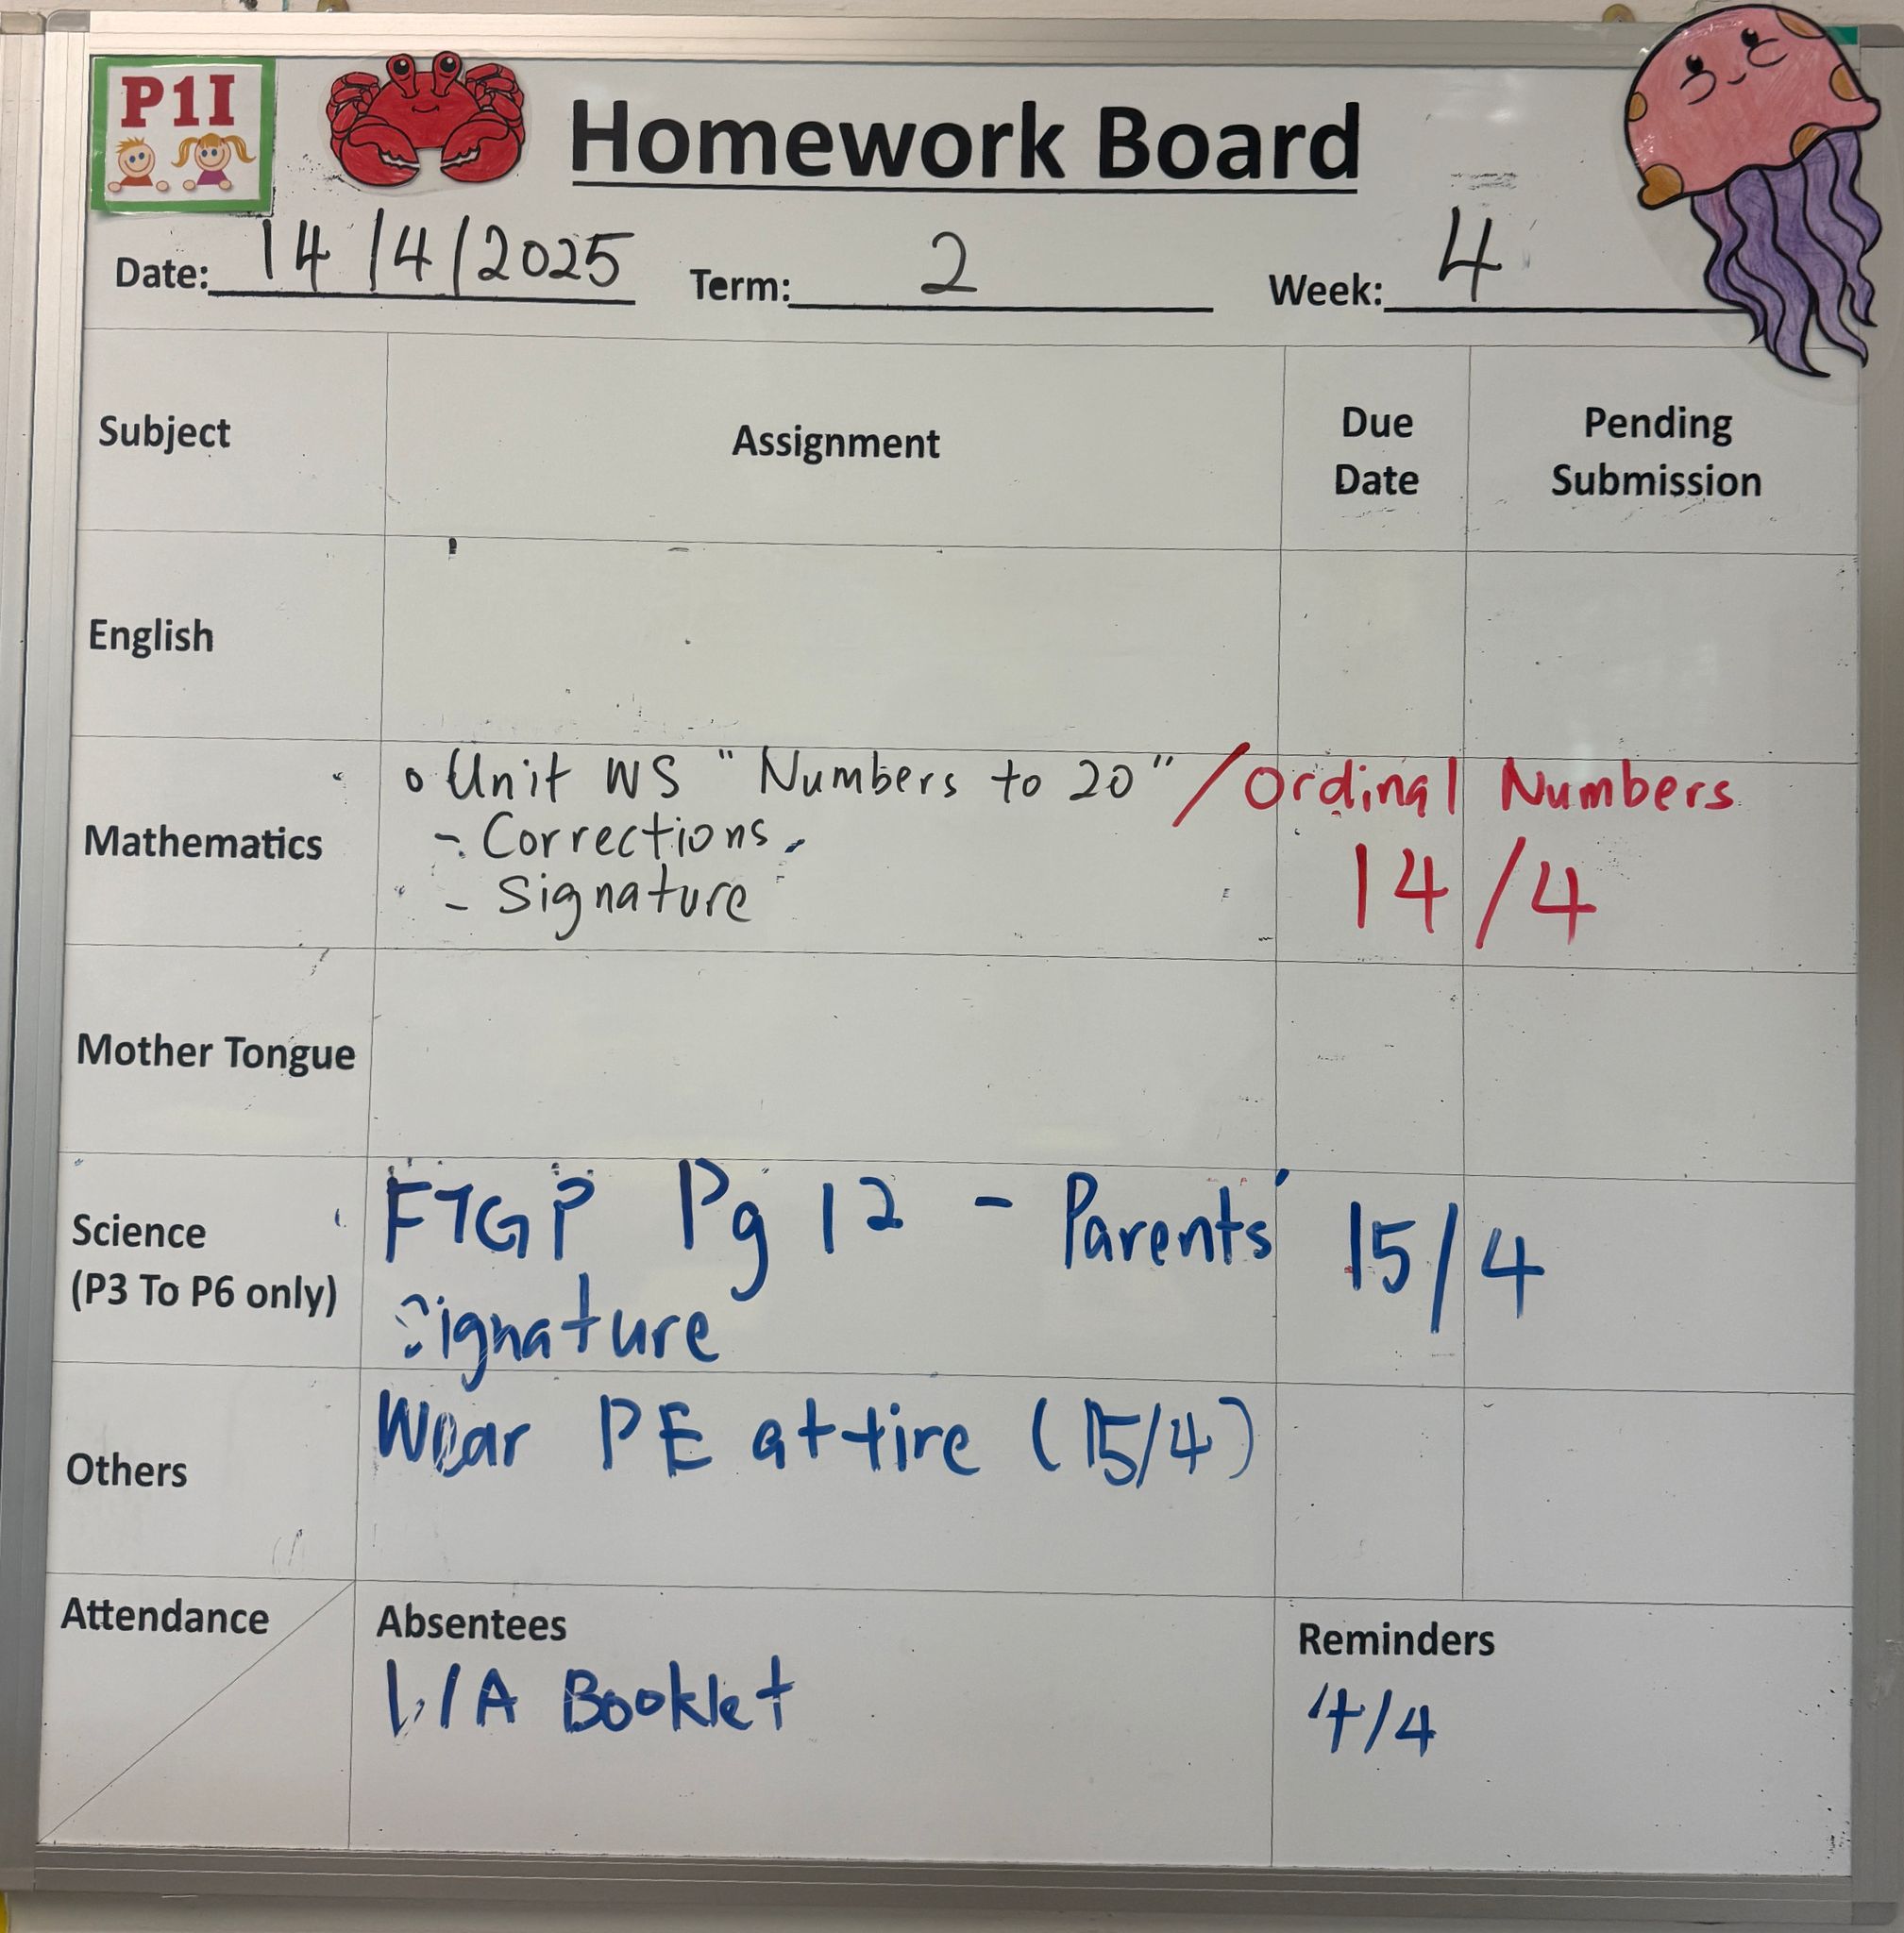 P1I
Homework Board
Date: 14/4/2025 Term: 2 Week: 4
Subject Assignment Due Date Pending Submission
English
Mathematics
o Unit WS "Numbers to 20" / Ordinal Numbers
- Corrections
- Signature
14/4
Mother Tongue
Science
(P3 To P6 only)
FTGP Pg 12 - Parents' 15/4
Signature
Others
Wear PE attire (15/4)
Attendance Absentees Reminders
/A Booklet 4/4